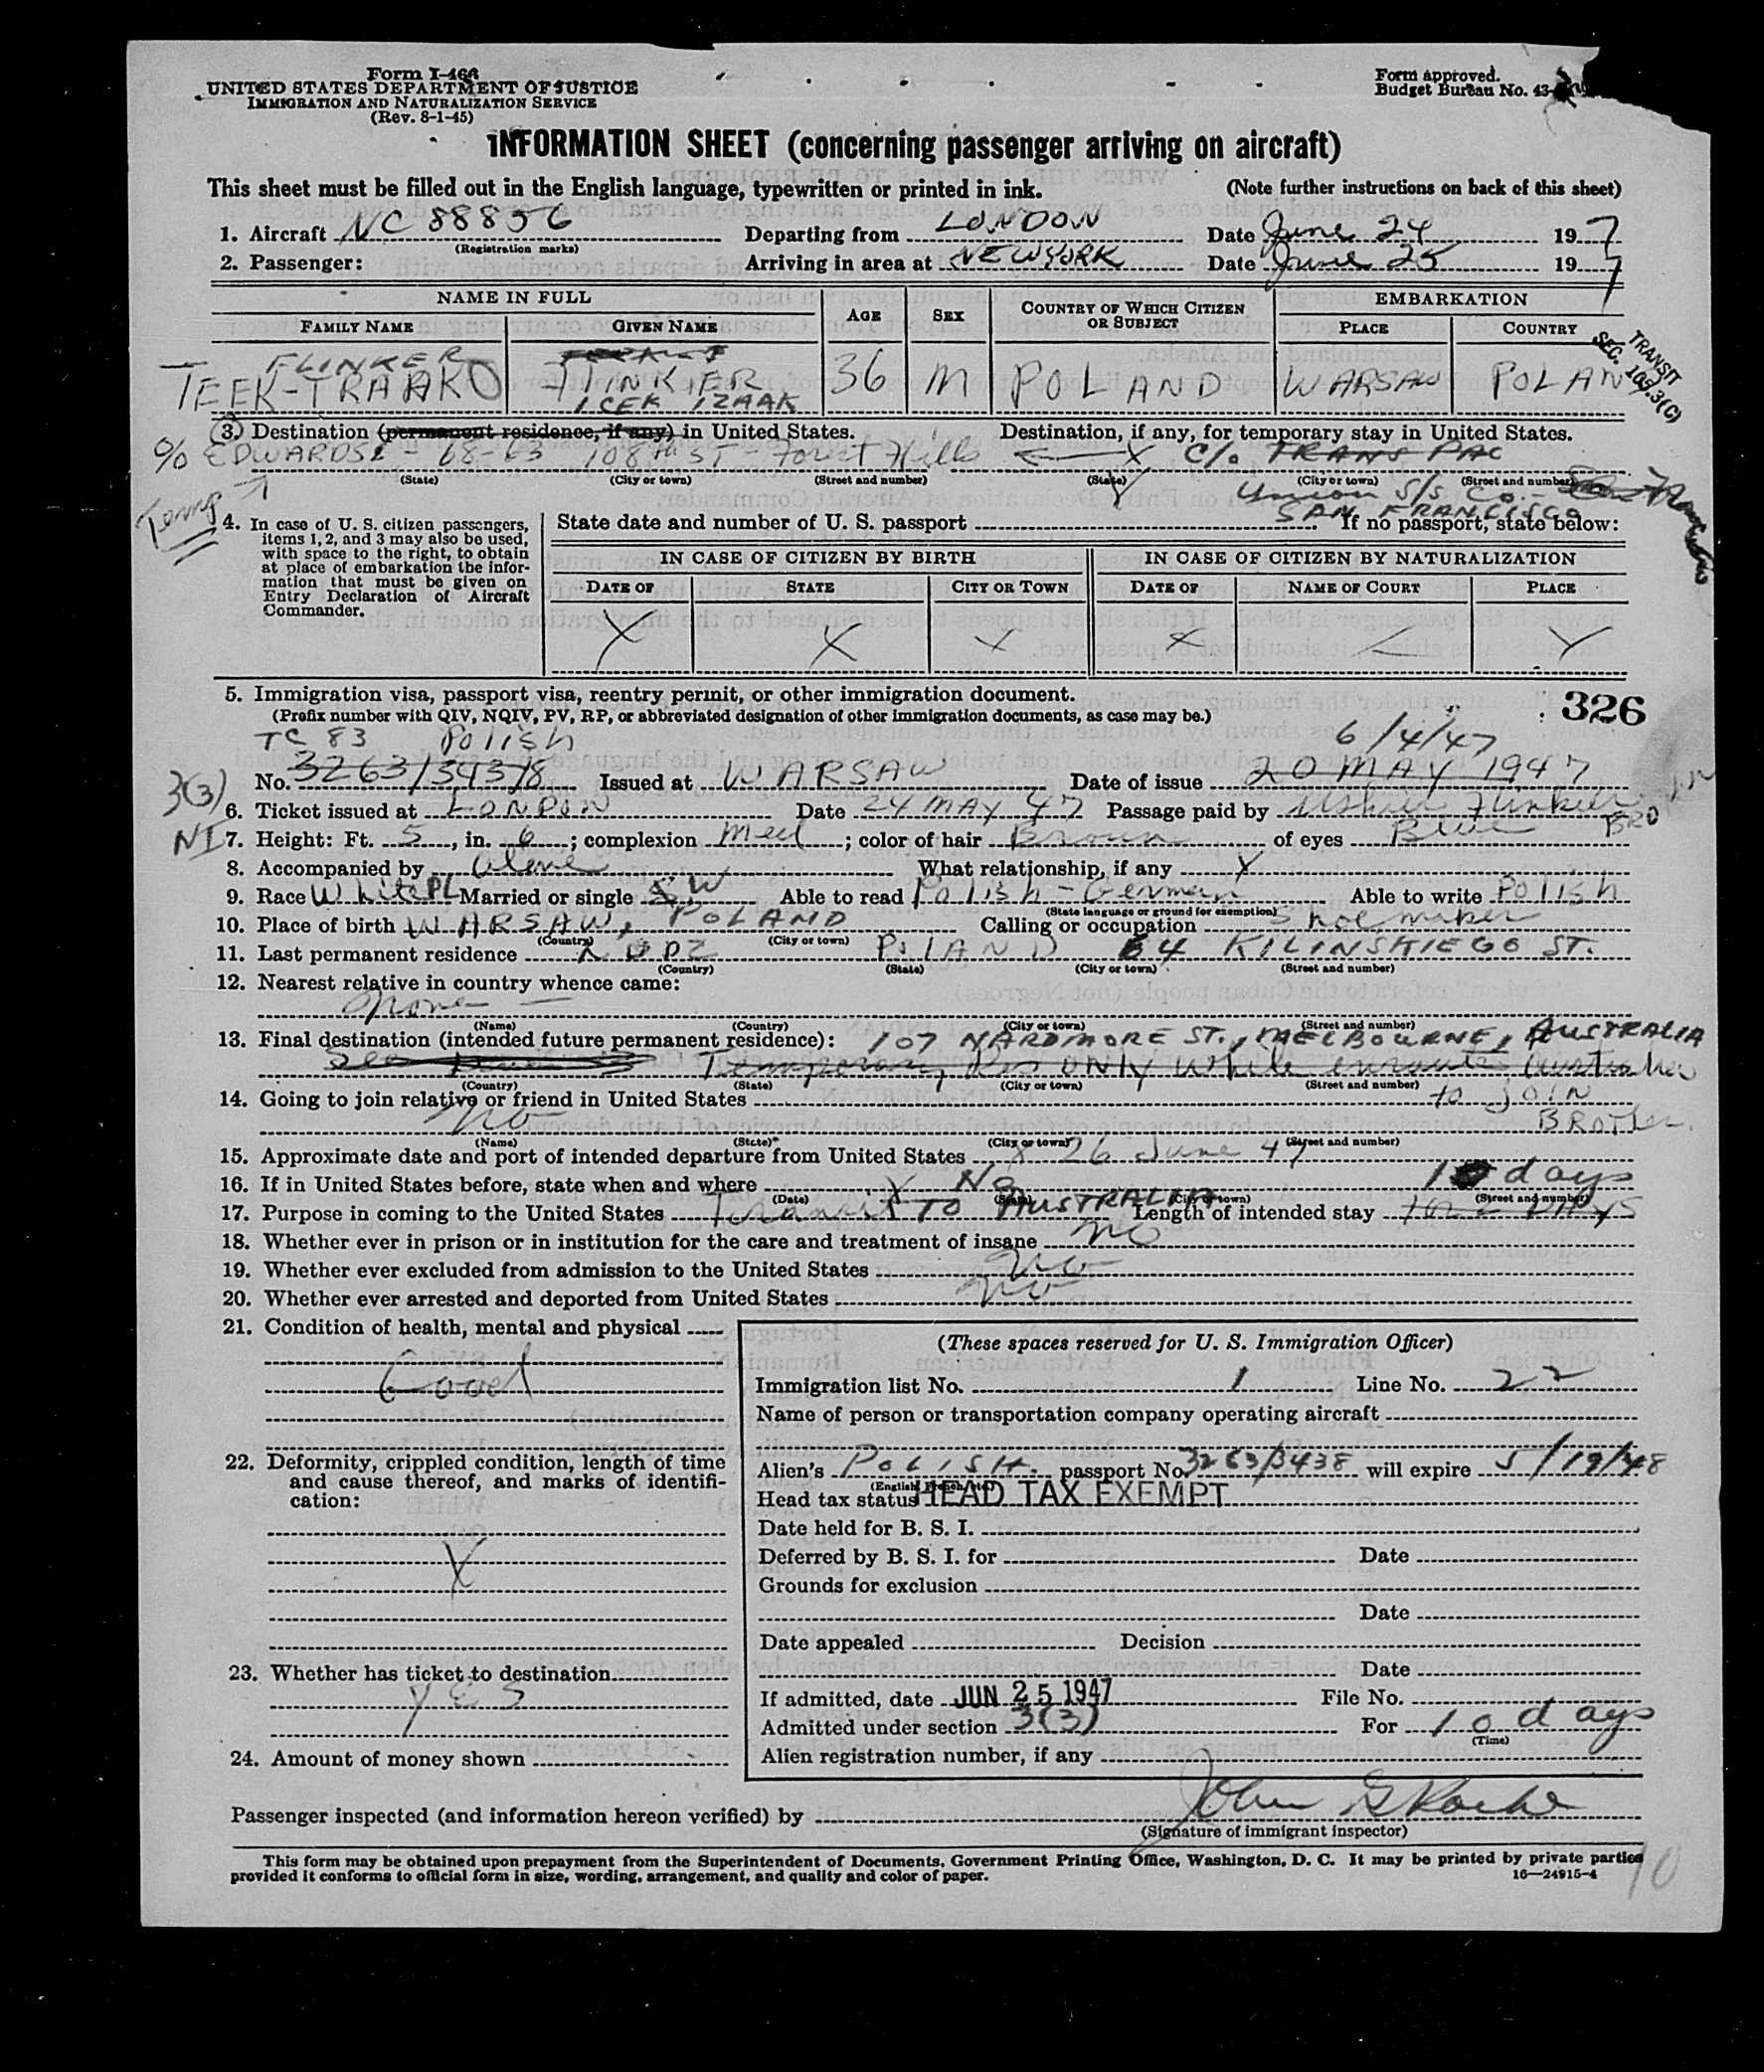 Form I-466
UNITED STATES DEPARTMENT OF JUSTICE
IMMIGRATION AND NATURALIZATION SERVICE
(Rev. 8-1-45)
Form approved.
Budget Bureau No. 43-
INFORMATION SHEET (concerning passenger arriving on aircraft)
This sheet must be filled out in the English language, typewritten or printed in ink. (Note further instructions on back of this sheet)
1. Aircraft NC 88856 Departing from LONDON Date June 24 197
(Registration marks)
2. Passenger: Arriving in area at NEW YORK Date June 25 197
NAME IN FULL AGE SEX COUNTRY OF WHICH CITIZEN OR SUBJECT EMBARKATION
FAMILY NAME GIVEN NAME PLACE COUNTRY
TRANSIT
SEC. 105.3(C)
FLINKER
TEEK-TRAAKO FLINKER 36 M POLAND WARSAW POLAN
ICEK IZAAK
3. Destination (permanent residence, if any) in United States. Destination, if any, for temporary stay in United States.
% EDWARDSE - 68-63 108th ST - Forest Hills X C/o TRANS PAC
(State) (City or town) (Street and number) (State) (City or town) (Street and number)
Union S/S Co. - San Francisco
SAN FRANCISCO
Temp
4. In case of U. S. citizen passengers, items 1, 2, and 3 may also be used, with space to the right, to obtain at place of embarkation the information that must be given on Entry Declaration of Aircraft Commander.
State date and number of U. S. passport If no passport, state below:
IN CASE OF CITIZEN BY BIRTH IN CASE OF CITIZEN BY NATURALIZATION
DATE OF STATE CITY OR TOWN DATE OF NAME OF COURT PLACE
X X X X X
5. Immigration visa, passport visa, reentry permit, or other immigration document. 326
(Prefix number with QIV, NQIV, PV, RP, or abbreviated designation of other immigration documents, as case may be.)
TC 83 Polish 6/4/47
No. 3263/3438 Issued at WARSAW Date of issue 20 MAY 1947
3(3)
6. Ticket issued at LONDON Date 24 MAY 47 Passage paid by Flinker BRO
NI
7. Height: Ft. 5, in. 6; complexion Med; color of hair Brown of eyes Blue
8. Accompanied by Alone What relationship, if any X
9. Race White PL Married or single S W Able to read Polish - German Able to write Polish
(State language or ground for exemption)
10. Place of birth WARSAW, POLAND Calling or occupation Shoe maker
(Country) (City or town)
11. Last permanent residence LODZ POLAND 64 KILINSKIEGO ST.
(Country) (State) (City or town) (Street and number)
12. Nearest relative in country whence came:
None —
(Name) (Country) (City or town) (Street and number)
13. Final destination (intended future permanent residence): 107 NARDMORE ST., MELBOURNE, AUSTRALIA
Temporary Res ONLY While enroute Australia
(Country) (State) (City or town) (Street and number)
14. Going to join relative or friend in United States to JOIN
No BROTHER.
(Name) (State) (City or town) (Street and number)
15. Approximate date and port of intended departure from United States X 26 June 47
16. If in United States before, state when and where X No 10 days
(Date) (State) (City or town) (Street and number)
17. Purpose in coming to the United States Transit TO AUSTRALIA Length of intended stay 1 or 2 DAYS
18. Whether ever in prison or in institution for the care and treatment of insane No
19. Whether ever excluded from admission to the United States No
20. Whether ever arrested and deported from United States No
21. Condition of health, mental and physical
Good
22. Deformity, crippled condition, length of time and cause thereof, and marks of identification:
X
23. Whether has ticket to destination
YES
24. Amount of money shown
(These spaces reserved for U. S. Immigration Officer)
Immigration list No. 1 Line No. 22
Name of person or transportation company operating aircraft
Alien's POLISH passport No. 3263/3438 will expire 5/19/48
(English, French, etc.)
Head tax status HEAD TAX EXEMPT
Date held for B. S. I.
Deferred by B. S. I. for Date
Grounds for exclusion
Date
Date appealed Decision
Date
If admitted, date JUN 25 1947 File No.
Admitted under section 3(3) For 10 days
(Time)
Alien registration number, if any
Passenger inspected (and information hereon verified) by John G Roche
(Signature of immigrant inspector)
This form may be obtained upon prepayment from the Superintendent of Documents, Government Printing Office, Washington, D. C. It may be printed by private parties
provided it conforms to official form in size, wording, arrangement, and quality and color of paper. 16—24915-4
10